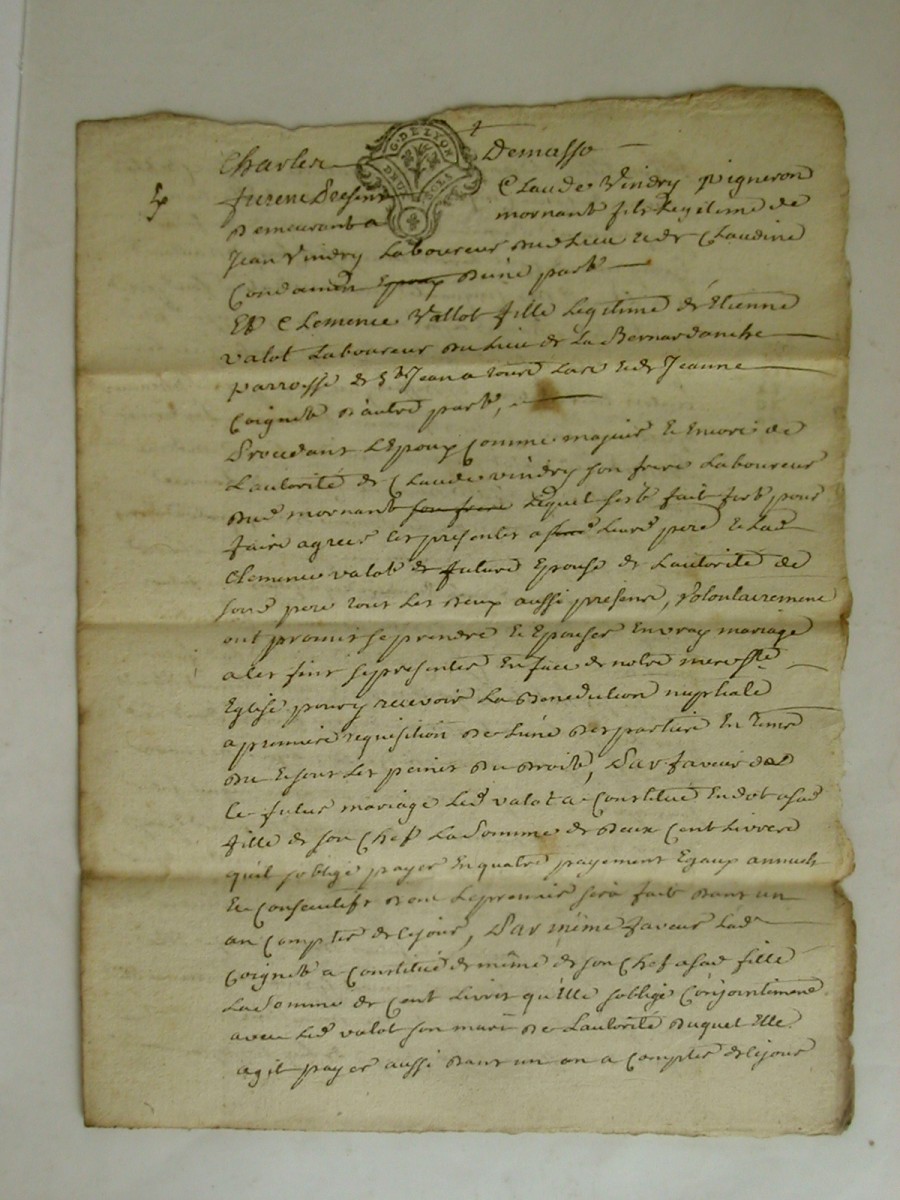 Charles Demasso
G. DE LYON
DEUX SOLS
furent Presens Claude Vindry Vigneron
Demeurant a mornant fils Legitime de
Jean Vindry Laboureur Dud Lieu & de Claudine
Condamin Epoux D'une part
Et Clemence Vallot fille Legitime d'Etienne
valot Laboureur du Lieu de La Bernardanche
parroisse de St Jean a & de Jeanne
Coignet D'autre part,
Procedant L'Epoux Comme majeur & Encore de
L'autorité de Claude vindry son frere Laboureur
Dud mornant son frere Lequel s'est fait fort pour
faire agreer Les presentes a Leur pere & Lad
Clemence valot de future Epouse de L'autorité de
sond pere tous Les Deux aussi presens, Volontairement
ont promis se prendre & Epouser En vray mariage
a Les fins se presenter En face de notre mere Ste
Eglise pour y recevoir La Benediction nuptiale
a premiere requisition de L'une Des parties En Tems
Du & sous Les peines Du Droit, En faveur de
Ce futur mariage Led valot a Constitué En dot a sad
fille de son Chef La Somme de Deux Cent Livres
qu'il s'oblige payer En quatre payement Egaux annuels
& Consecutifs Dont Le premier sera fait Dans un
an Comptés de Ce jour, En même faveur Lad
Coignet a Constitué de même de son Chef a sad fille
La Somme de Cent Livres qu'Elle s'oblige Conjointement
avec Led valot son mari De L'autorité Duquel Elle
agit payer aussi Dans un an a Compter de Ce jour